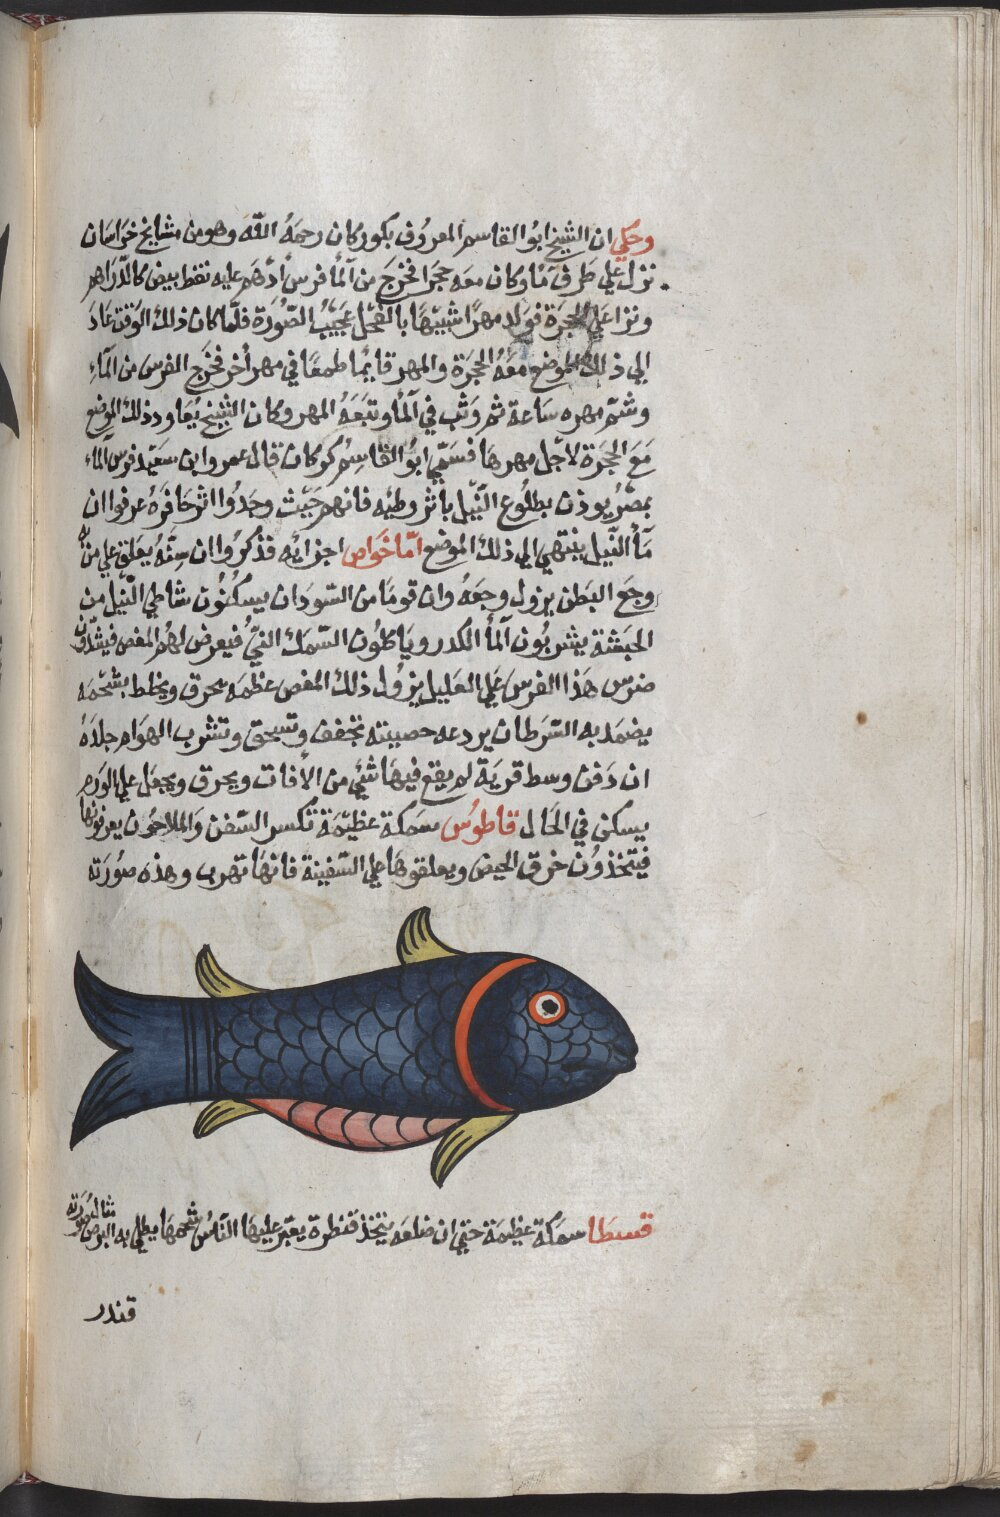 وحكي ان الشيخ ابو القاسم المعروف بكوركان رحمه الله وهو من مشايخ خراسان
نزل علي طرف ما وكان معه حجرا فخرج من الما فرس ادهم عليه نقط بيض كالدراهم
ونزا علي الحجرة فولد مهرا شبيها بالفحل عجيب الصورة فلما كان ذلك الوقت عاد
الي ذلك الموضع معه الحجرة والمهر قايما طمعا في مهر اخر فخرج الفرس من الماء
وشم مهره ساعة ثم وثب في الما وتبعه المهر وكان الشيخ يعاود ذلك الموضع
مع الحجرة لاجل مهرها فسمي ابو القاسم كركان قال عمرو ابن سعيد فرس الماء
بمصر يوذن بطلوع النيل باثر وطيه فانهم حيث وجدوا اثر حافره عرفوا ان
مآ النيل ينتهي الي ذلك الموضع اما خواص اجزائه فذكروا ان سنه يعلق علي من به
وجع البطن يزول وجعه وان قوما من السودان يسكنون شاطي النيل من
الحبشة يشربون المآ الكدر وياكلون السمك الني فيعرض لهم المغص فيشدون
ضرس هذا الفرس علي العليل يزول ذلك المغص عظمه يحرق ويخلط بشحمه
يضمد به السرطان يردعه خصيته تجفف وتسحق وتشرب الهوام جلده
ان دفن وسط قرية لم يقع فيها شئي من الافات ويحرق ويجعل علي الورم
يسكن في الحال قاطوس سمكة عظيمة تكسر السفن والملاحون يعرفونها
فيتخذون خرق الحيض ويعلقوها علي السفينة فانها تهرب وهذه صورته
قسطا سمكة عظيمة حتي ان ضلعه يتخذ قنطرة يعبر عليها الناس شحمها يطلي به البرص صورته
قندر